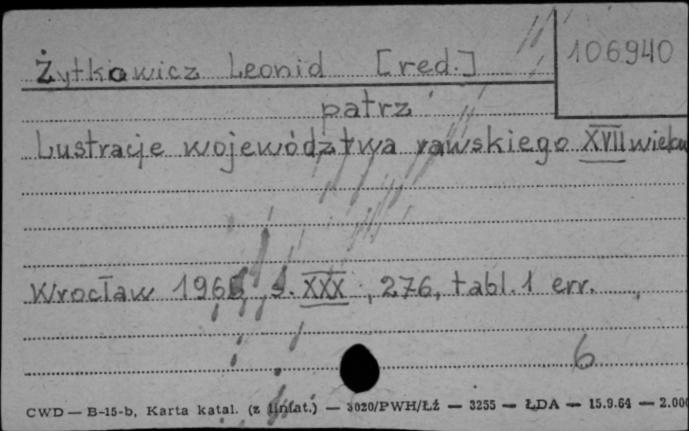 106940
Żytkowicz Leonid [red.]
patrz
Lustracje województwa rawskiego XVII wieku
Wrocław 1965, s. XXX, 276, tabl. 1 err.
6
CWD — B-15-b, Karta katal. (z liniat.) — 3020/PWH/Łź — 3255 — ŁDA — 15.9.64 — 2.000